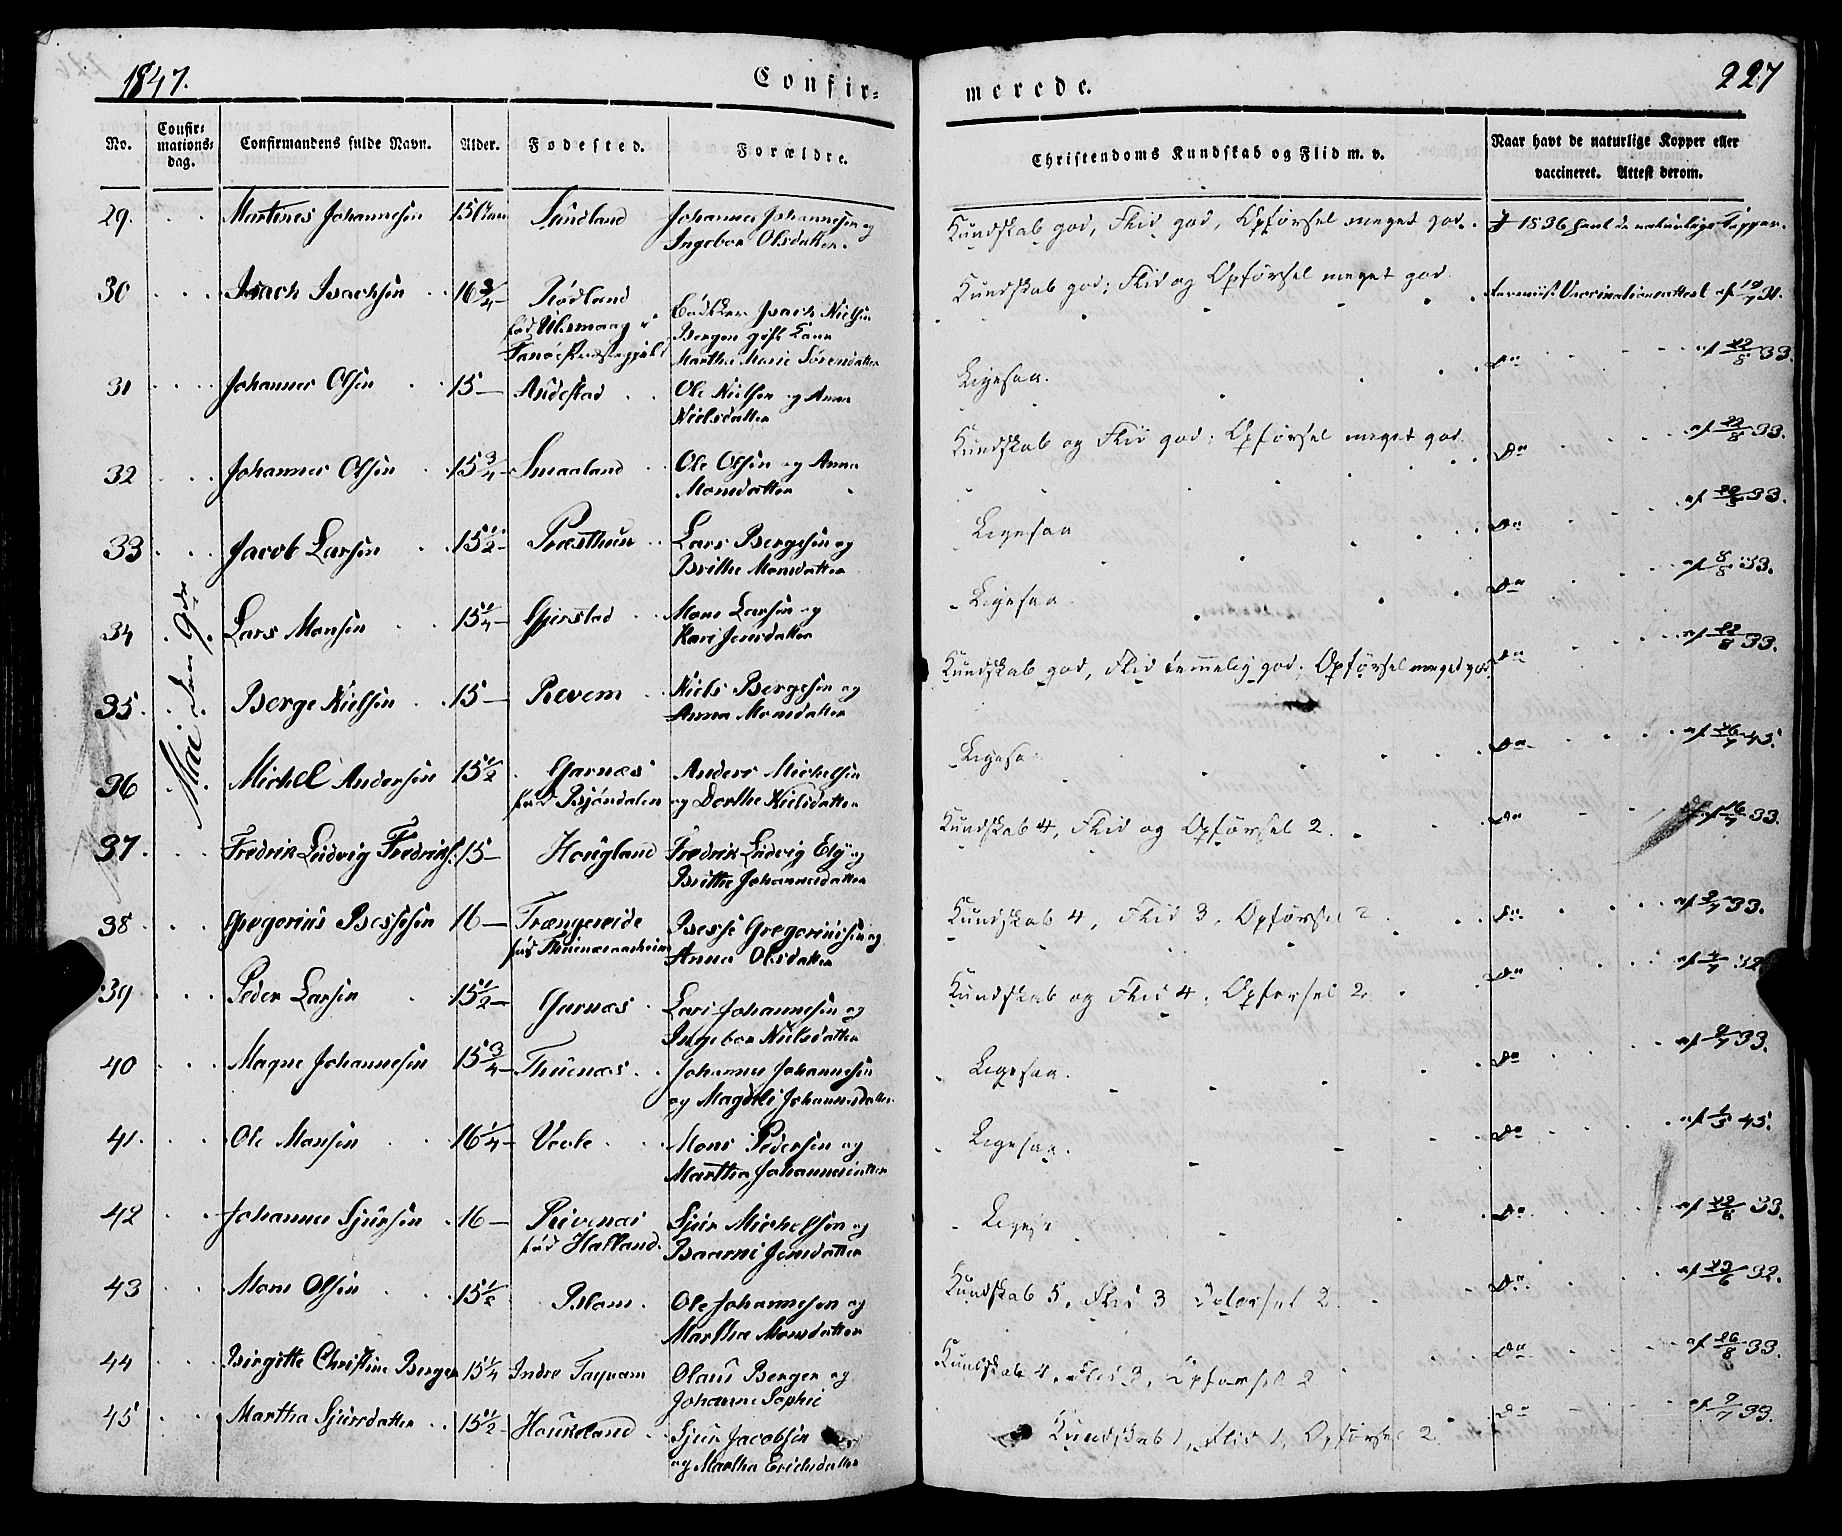 1847.
Confir=
merede.
227
No.
Confir=
mations=
dag.
Confirmandens fulde Navn.
Alder.
Fødested.
Forældre.
Christendoms Kundskab og Flid m. v.
Naar havt de naturlige Kopper eller
vaccineret. Attest derom.
Mai den 9de
29. Martines Johannesen 15 Sundland Johannes Johannesen og
Ingebor Olsdatter.
Kundskab god, Flid god, Opførsel meget god. I 1836 havt de naturlige Kopper.
30 Isach Isachsen 16 3/4 Rødland Bødker Isach Nielsen
fød Ulsmaag i Bergen gift Kone
Martha Marie Sørensdatter
Kundskab god; Flid og Opførsel meget god Vaccinationsattest af 31.
31 Johannes Olsen 15 Andestad Ole Nielsen og Anna
Nielsdatter
Ligesaa. Do af 22/8 33.
32 Johannes Olsen 15 3/4 Smaaland Ole Olsen og Anna
Monsdatter
Kundskab og Flid god; Opførsel meget god Do af 22/8 33.
33 Jacob Larsen 15 1/2 Præsthun Lars Bergesen og
Brithe Monsdatter
Ligesaa Do af 33.
34 Lars Monsen 15 1/4 Gjerstad Mons Larsen og
Kari Jensdatter
Ligesaa. Do af 8/8 33.
35. Berge Nielsen 15 Revem Niels Bergesen og
Anna Monsdatter
Kundskab god, Flid temmelig god. Opførsel meget god. Do af 33.
36 Michel Andersen 15 1/2 Garnæs Anders Michelsen
fød Bjøndalen og Dorthe Nielsdatter
Ligesa Do af 26/7 45.
37 Fredrik Ludvig Fredriks. 15 Hougland Fredrik Ludvig og
Brithe Johannesdatter
Kundskab 4, Flid og Opførsel 2. Do af 16/7 33.
38 Gregorius Bessesen 16 Trængereide Besse Gregoriussen og
Anna Olsdatter
Kundskab 4, Flid 3, Opførsel 2. Do af 33.
39 Peder Larsen 15 1/2 Garnæs Lars Johannesen og
Ingebor Nielsdatter
Kundskab og Flid 4, Opførsel 2. Do af 32
40 Magne Johannesen 15 3/4 Thuenæs Johannes Johannesen
og Magdeli Johannesdatter
Ligesaa. Do af 9/7 33.
41. Ole Monsen 16 1/4 Vevle Mons Pedersen og
Martha Johannesdatter
Ligesaa. Do af 45.
42 Johannes Sjursen 16 Rivenæs Sjur Michelsen og
fød Halland. Baarni Jonsdatter
Ligesa Do af 22/8 33.
43 Mons Olsen 15 1/2 Blom. Ole Johannesen og
Martha Monsdatter
Kundskab 5, Flid 3 Opførsel 2 Do af 23/6 32.
44 Birgitte Christine Berger 15 1/4 Indre Taqvam Olaus Berger og
Johanne Sophie
Kundskab 4, Flid 3, Opførsel 2 Do af 26/8 33.
45 Martha Sjursdatter 15 1/2 Houkeland Sjur Jacobsen
og Martha Erichsdatter
Kundskab 1, Flid 1, Opførsel 2 Do af 9/7 33.